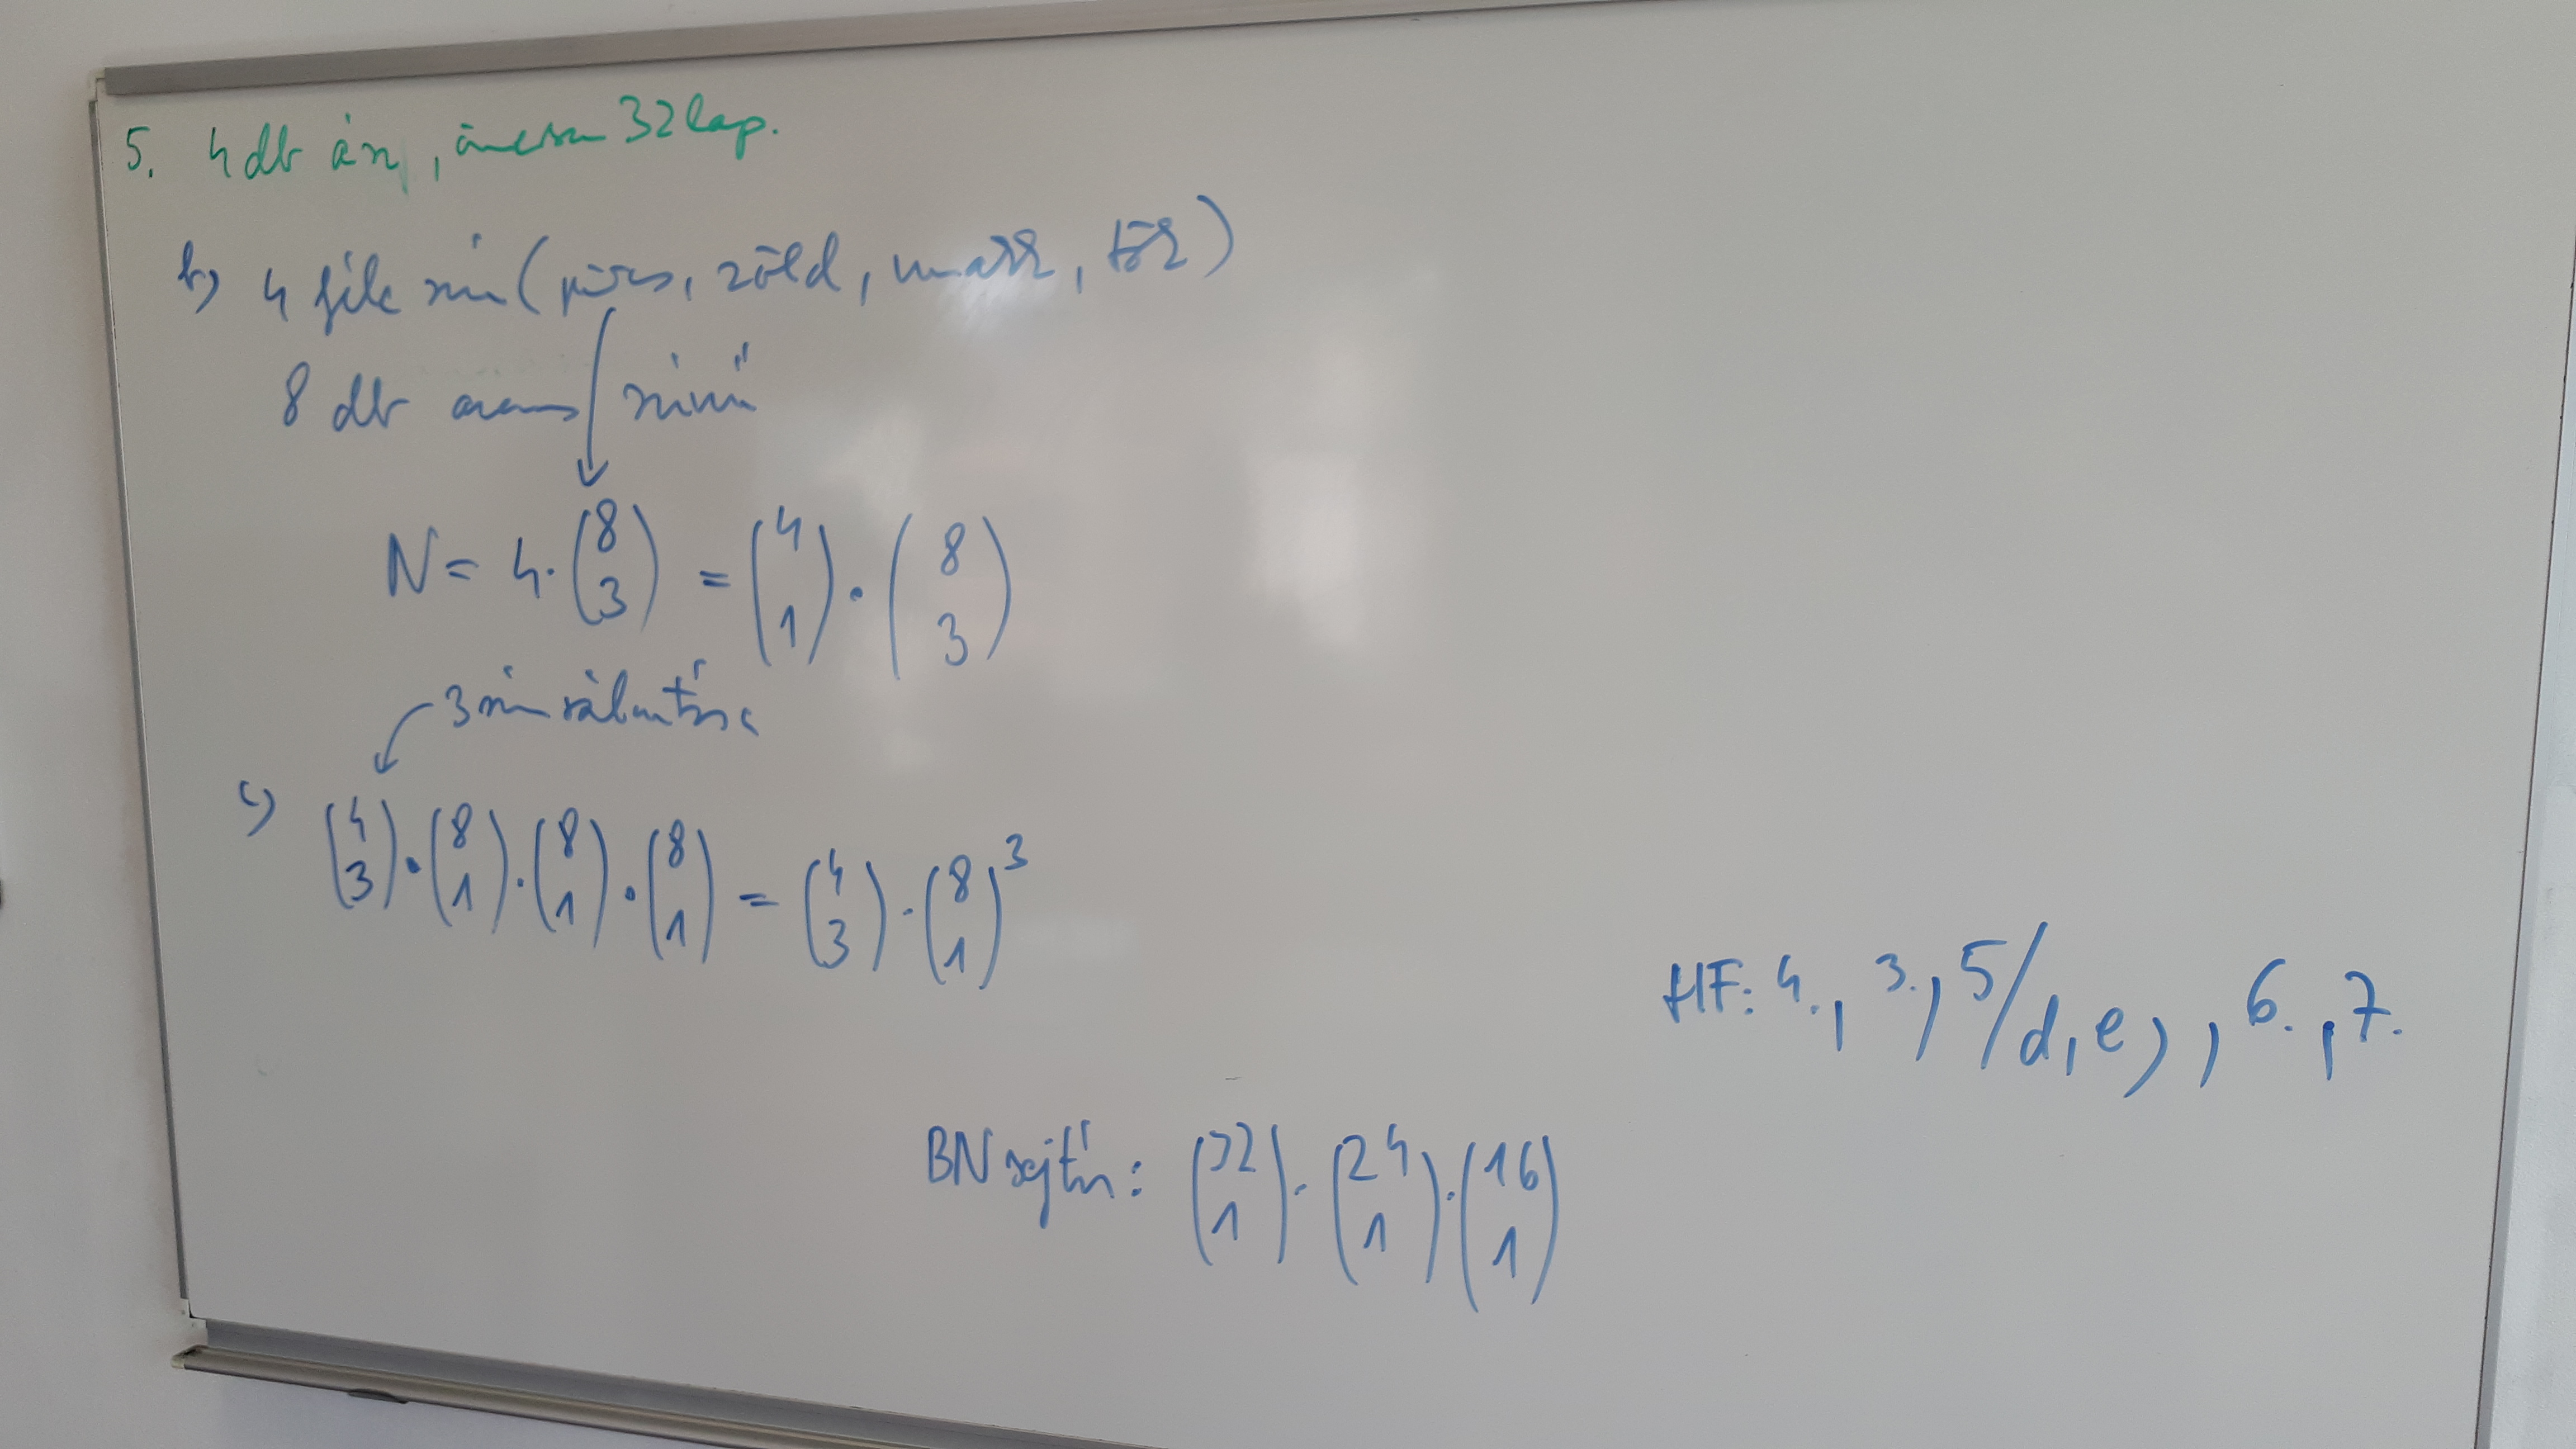 5. 4 db ász, összesen 32 lap.
b) 4 féle szín (piros, zöld, makk, tök)
8 db azonos színű
N = 4·(8 3) = (4 1)·(8 3)
3 szín kiválasztása
c) (4 3)·(8 1)·(8 1)·(8 1) = (4 3)·(8 1)³
HF: 4., 3., 5/d, e), 6., 7.
BN sejtés: (32 1)·(24 1)·(16 1)